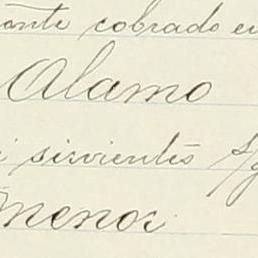 ante cobrado en
Alamo
sirvientes
Menor